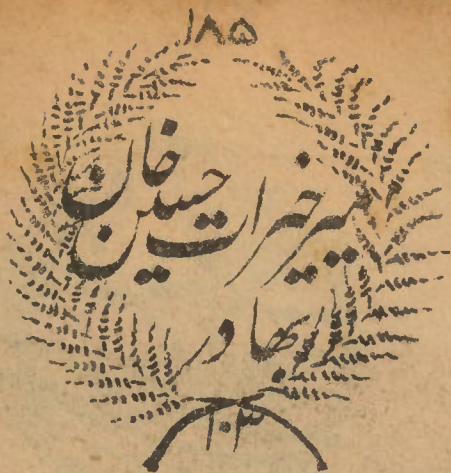 ۱۸۵
میر خیرات حسین خان
بہادر
۱۰۳